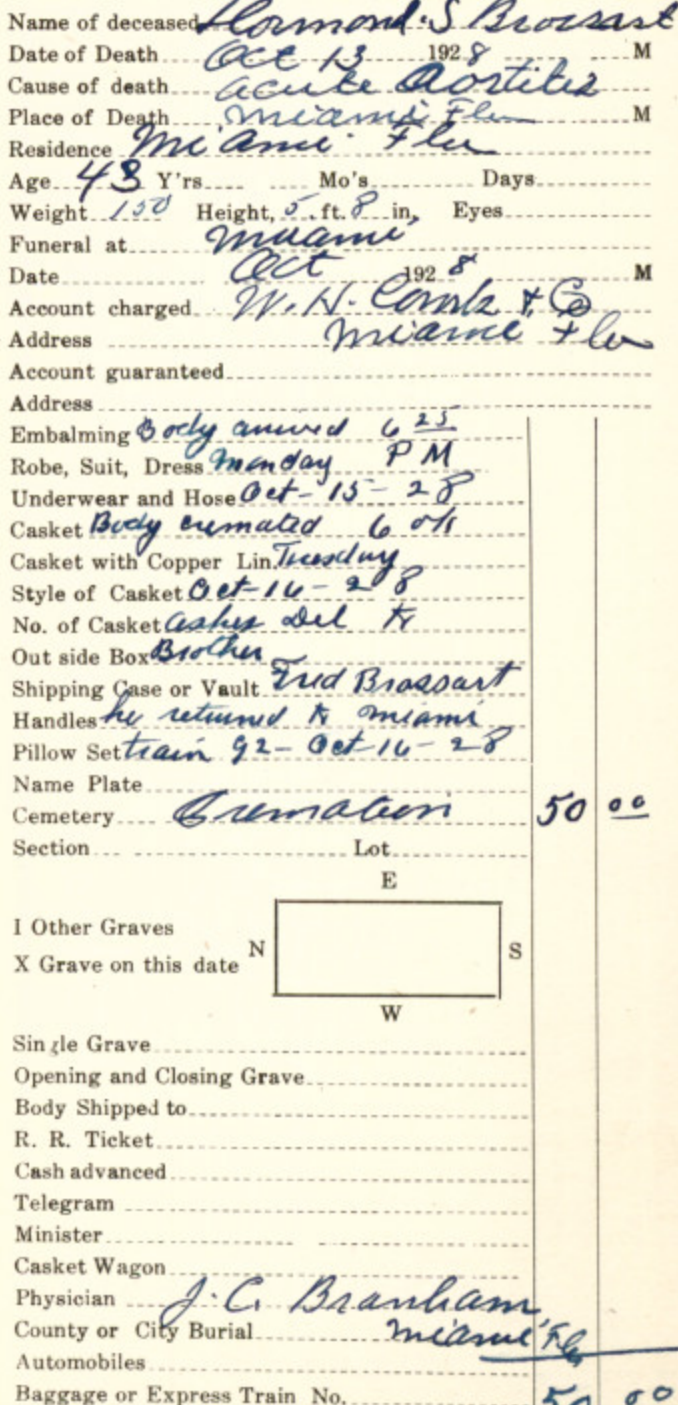 Name of deceased Hormond. S Brossart
Date of Death Oct 13 1928 M
Cause of death acute Aortites
Place of Death Miami Fla M
Residence Miami Fla
Age 43 Y'rs Mo's Days
Weight 150 Height, 5. ft. 8 in, Eyes
Funeral at Miami
Date Oct 1928 M
Account charged W. H. & Co
Address Miami Fla
Account guaranteed
Address
Embalming Body arrived 6 25
Robe, Suit, Dress Monday P M
Underwear and Hose Oct-15-28
Casket Body cremated 6 o/k
Casket with Copper Lin. Tuesday
Style of Casket Oct-16-28
No. of Casket Ashes Del to
Out side Box Brother
Shipping Case or Vault Fred Brossart
Handles he returned to Miami
Pillow Set train 92- Oct-16-28
Name Plate
Cemetery Cremation 50 00
Section Lot
E
I Other Graves
N S
X Grave on this date
W
Single Grave
Opening and Closing Grave
Body Shipped to
R. R. Ticket
Cash advanced
Telegram
Minister
Casket Wagon
Physician J. C. Branham
County or City Burial Miami Fla
Automobiles
Baggage or Express Train No. 50 00